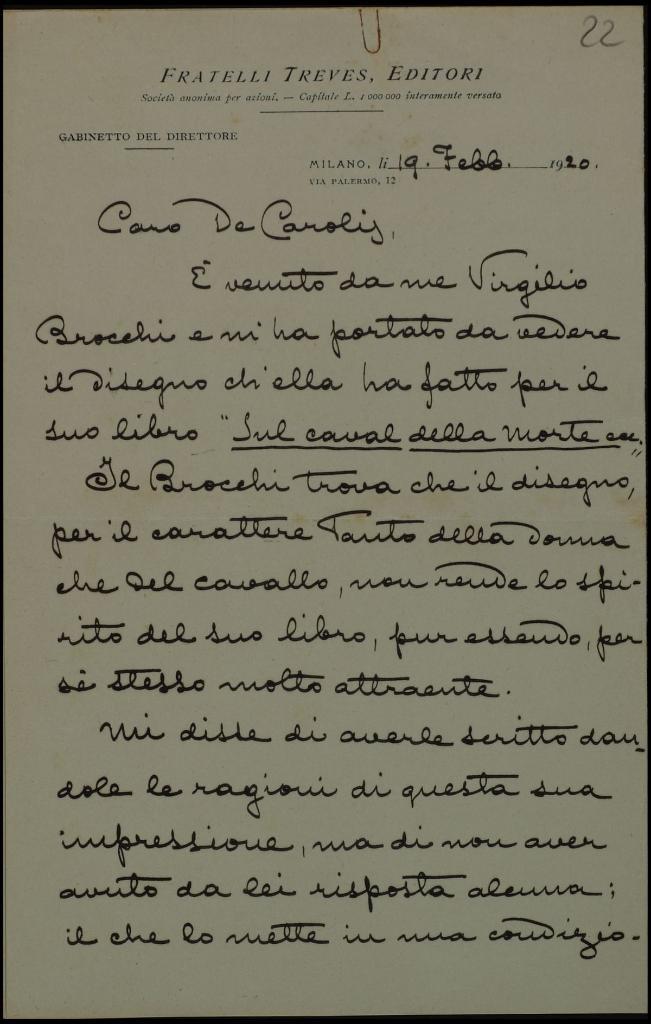 22
FRATELLI TREVES, EDITORI
Società anonima per azioni. — Capitale L. 1 000 000 interamente versato
GABINETTO DEL DIRETTORE
MILANO, li 19. Febb. 1920.
VIA PALERMO, 12
Caro De Carolis,
È venuto da me Virgilio
Brocchi e mi ha portato da vedere
il disegno ch'ella ha fatto per il
suo libro "Sul caval della Morte ecc."
Il Brocchi trova che il disegno,
per il carattere tanto della donna
che del cavallo, non rende lo spi-
rito del suo libro, pur essendo, per
sè stesso molto attraente.
Mi disse di averle scritto dan-
dole le ragioni di questa sua
impressione, ma di non aver
avuto da lei risposta alcuna;
il che lo mette in una condizio-